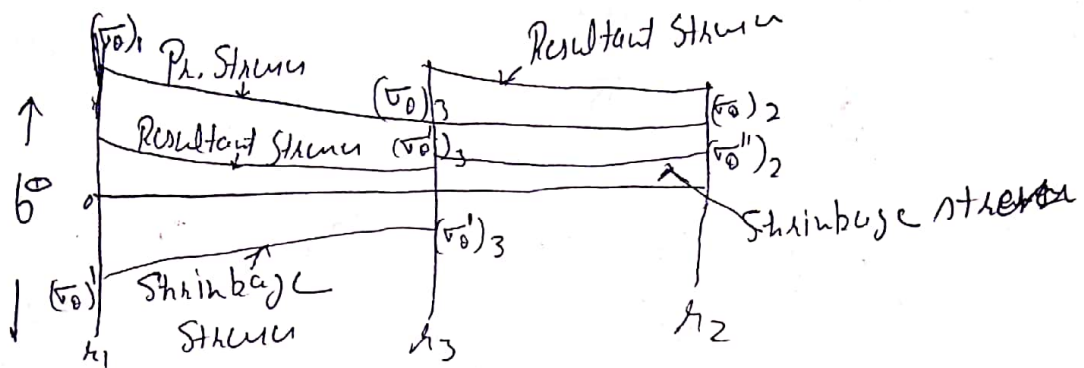 (σθ)₁
Pr. Stresses
Resultant Stresses
(σθ)₃
(σθ)₂
Resultant Stresses
(σθ'')₃
(σθ'')₂
↑
σθ
0
↓
(σθ')₃
Shrinkage stresses
(σθ)'
Shrinkage
Stresses
r₁
r₃
r₂